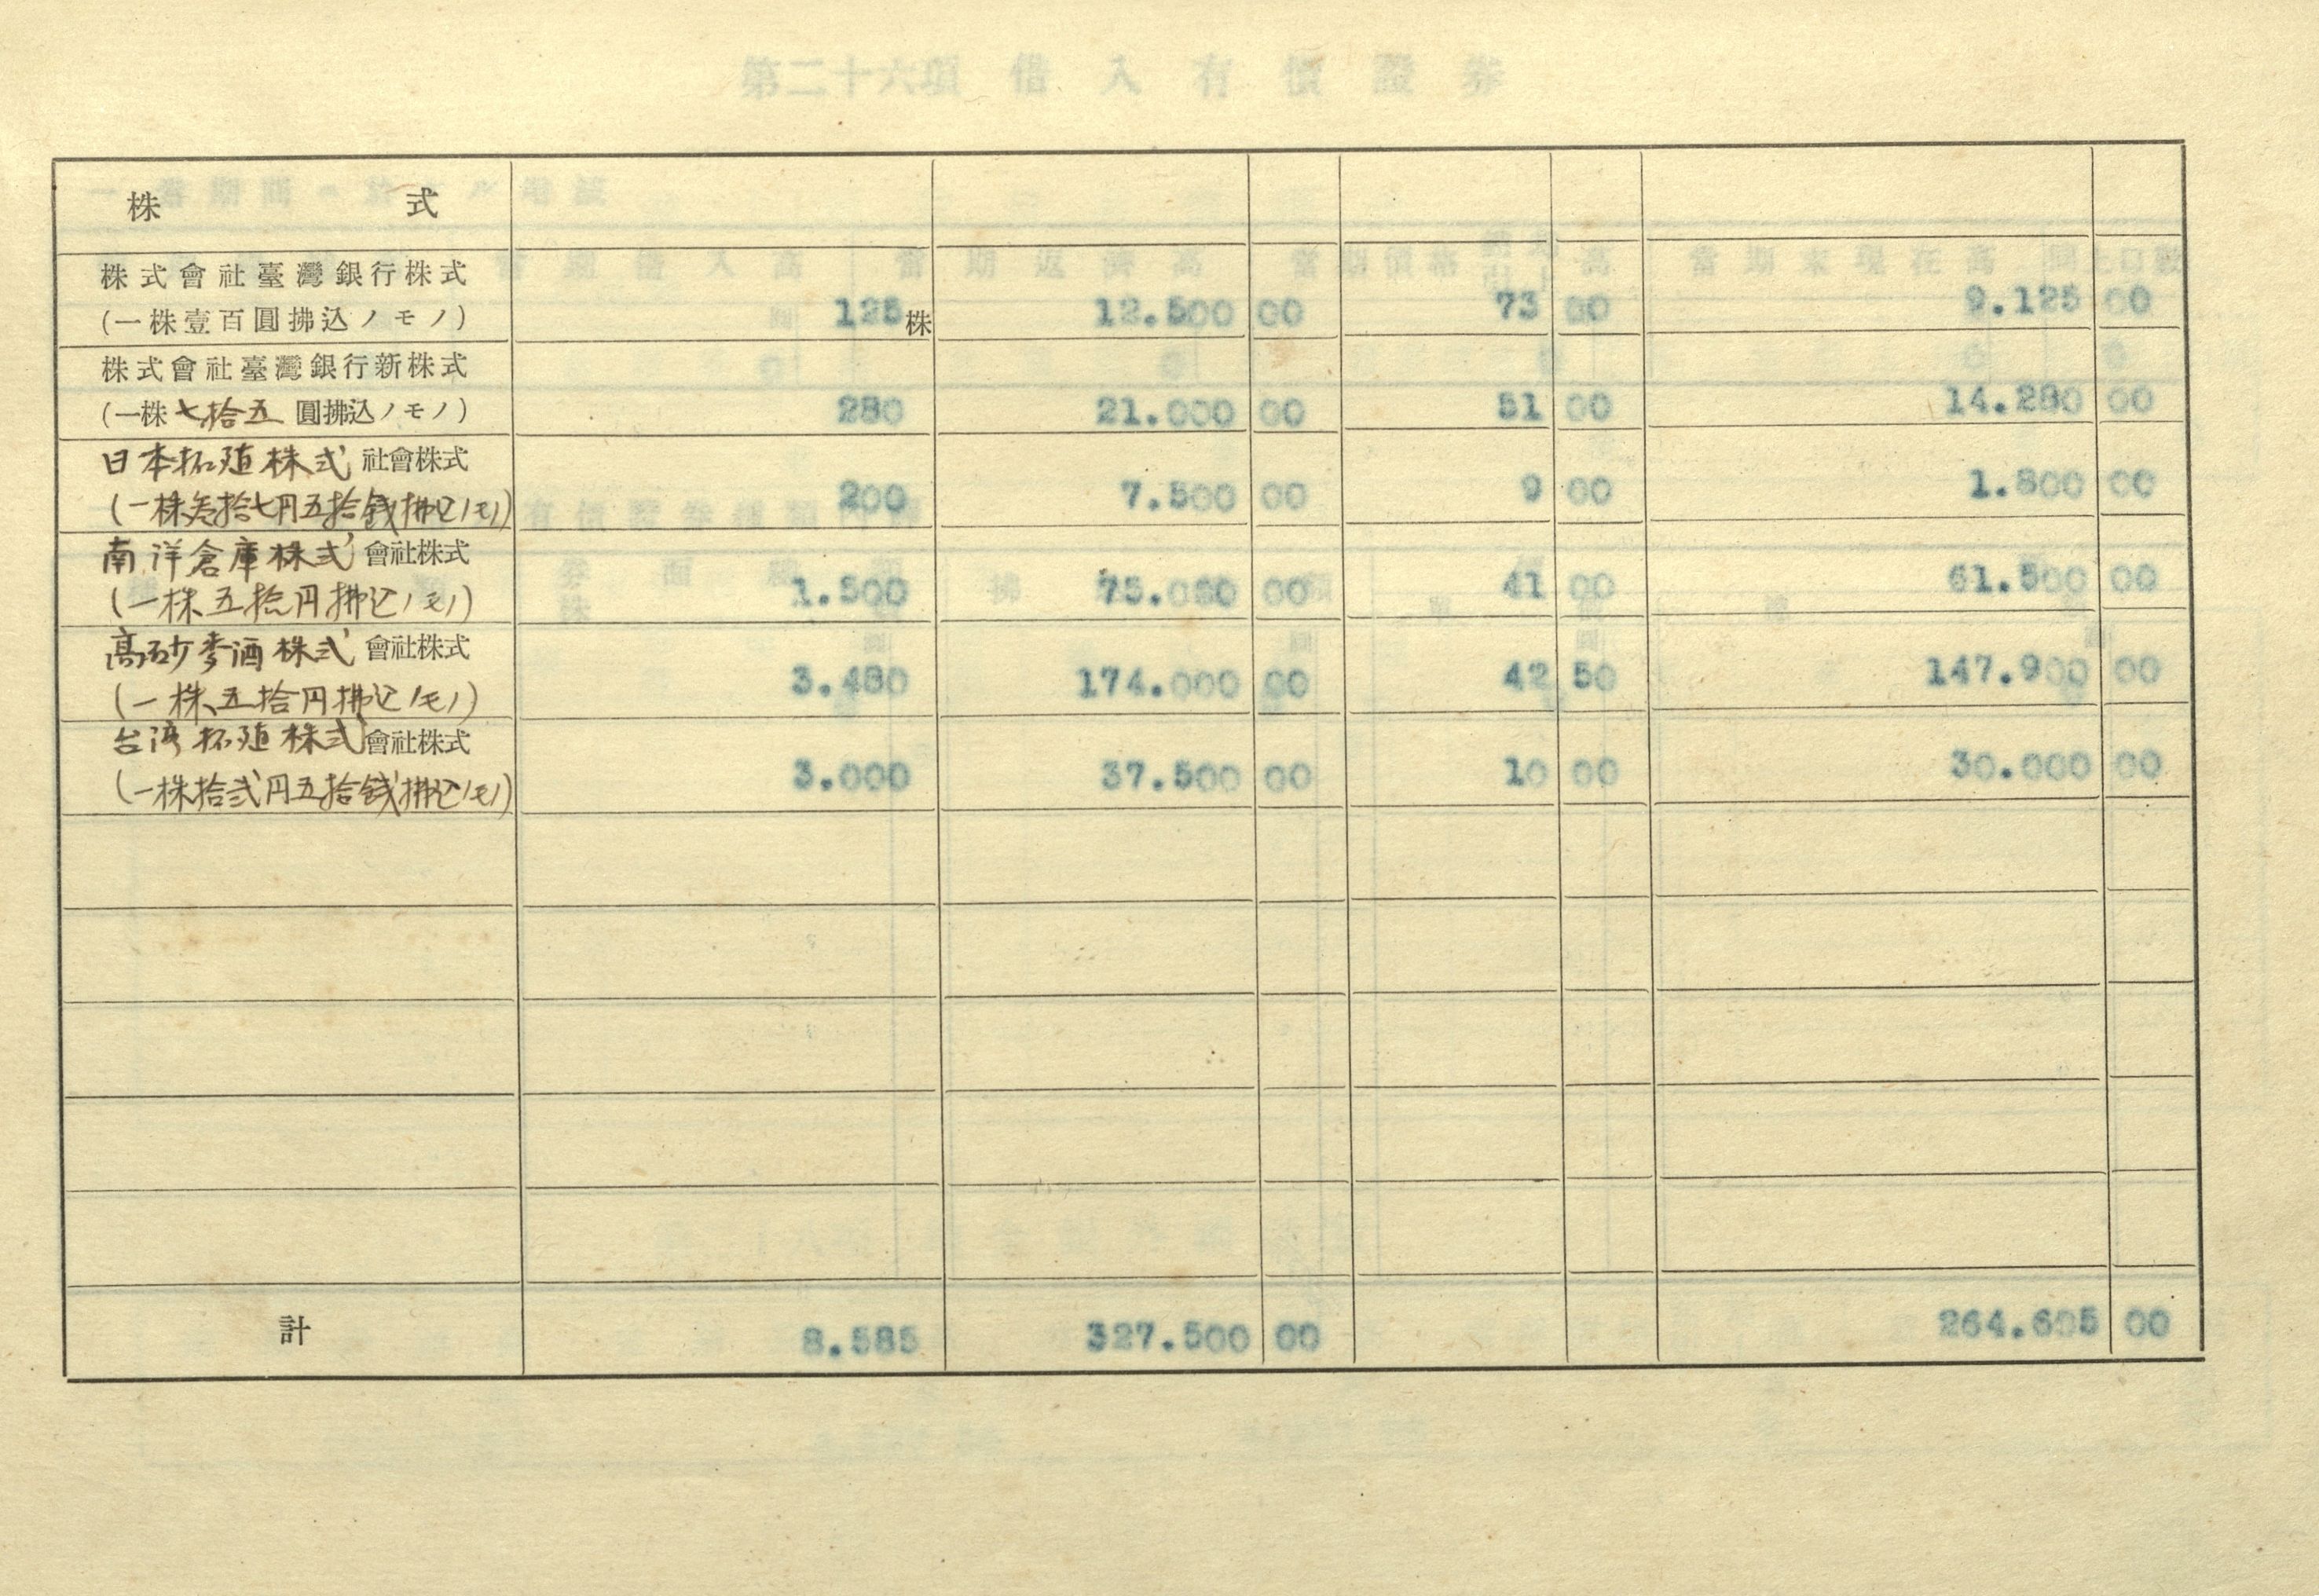 第二十六項 借入有價證券
株 式
株式會社臺灣銀行株式
(一株壹百圓拂込ノモノ) 125株 12.500 00 73 00 9.125 00
株式會社臺灣銀行新株式
(一株七拾五圓拂込ノモノ) 280 21.000 00 51 00 14.280 00
日本拓殖株式社會株式
(一株参拾七円五拾銭拂込ノモノ) 200 7.500 00 9 00 1.800 00
南洋倉庫株式會社株式
(一株五拾円拂込ノモノ) 1.500 75.000 00 41 00 61.500 00
高砂麦酒株式會社株式
(一株五拾円拂込ノモノ) 3.480 174.000 00 42 50 147.900 00
台湾拓殖株式會社株式
(一株拾弐円五拾銭拂込ノモノ) 3.000 37.500 00 10 00 30.000 00
計 8.585 327.500 00 264.605 00